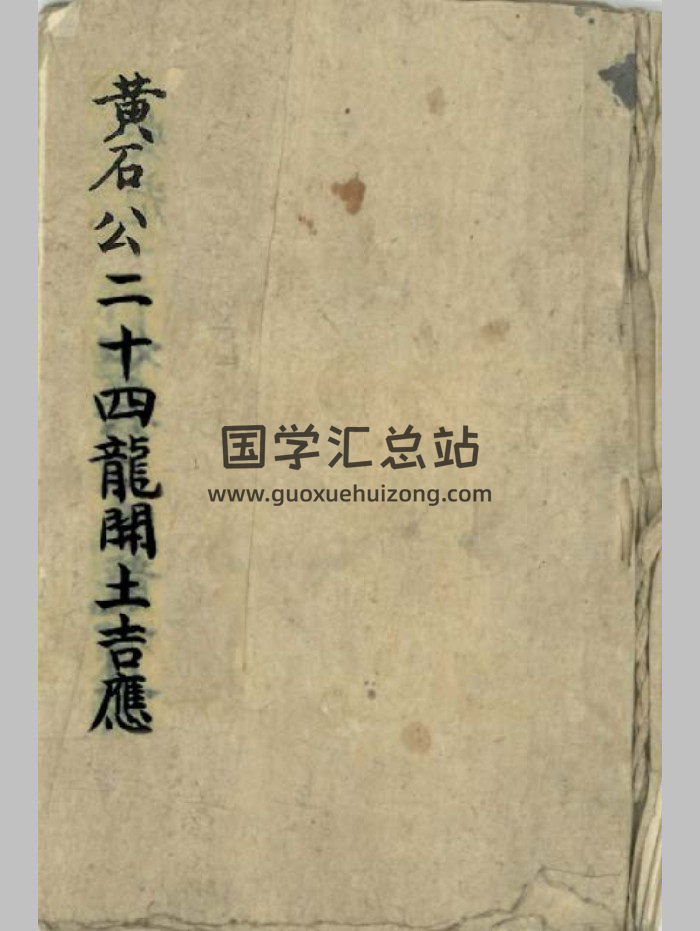 黃石公二十四龍開土吉應
国学汇总站
www.guoxuehuizong.com